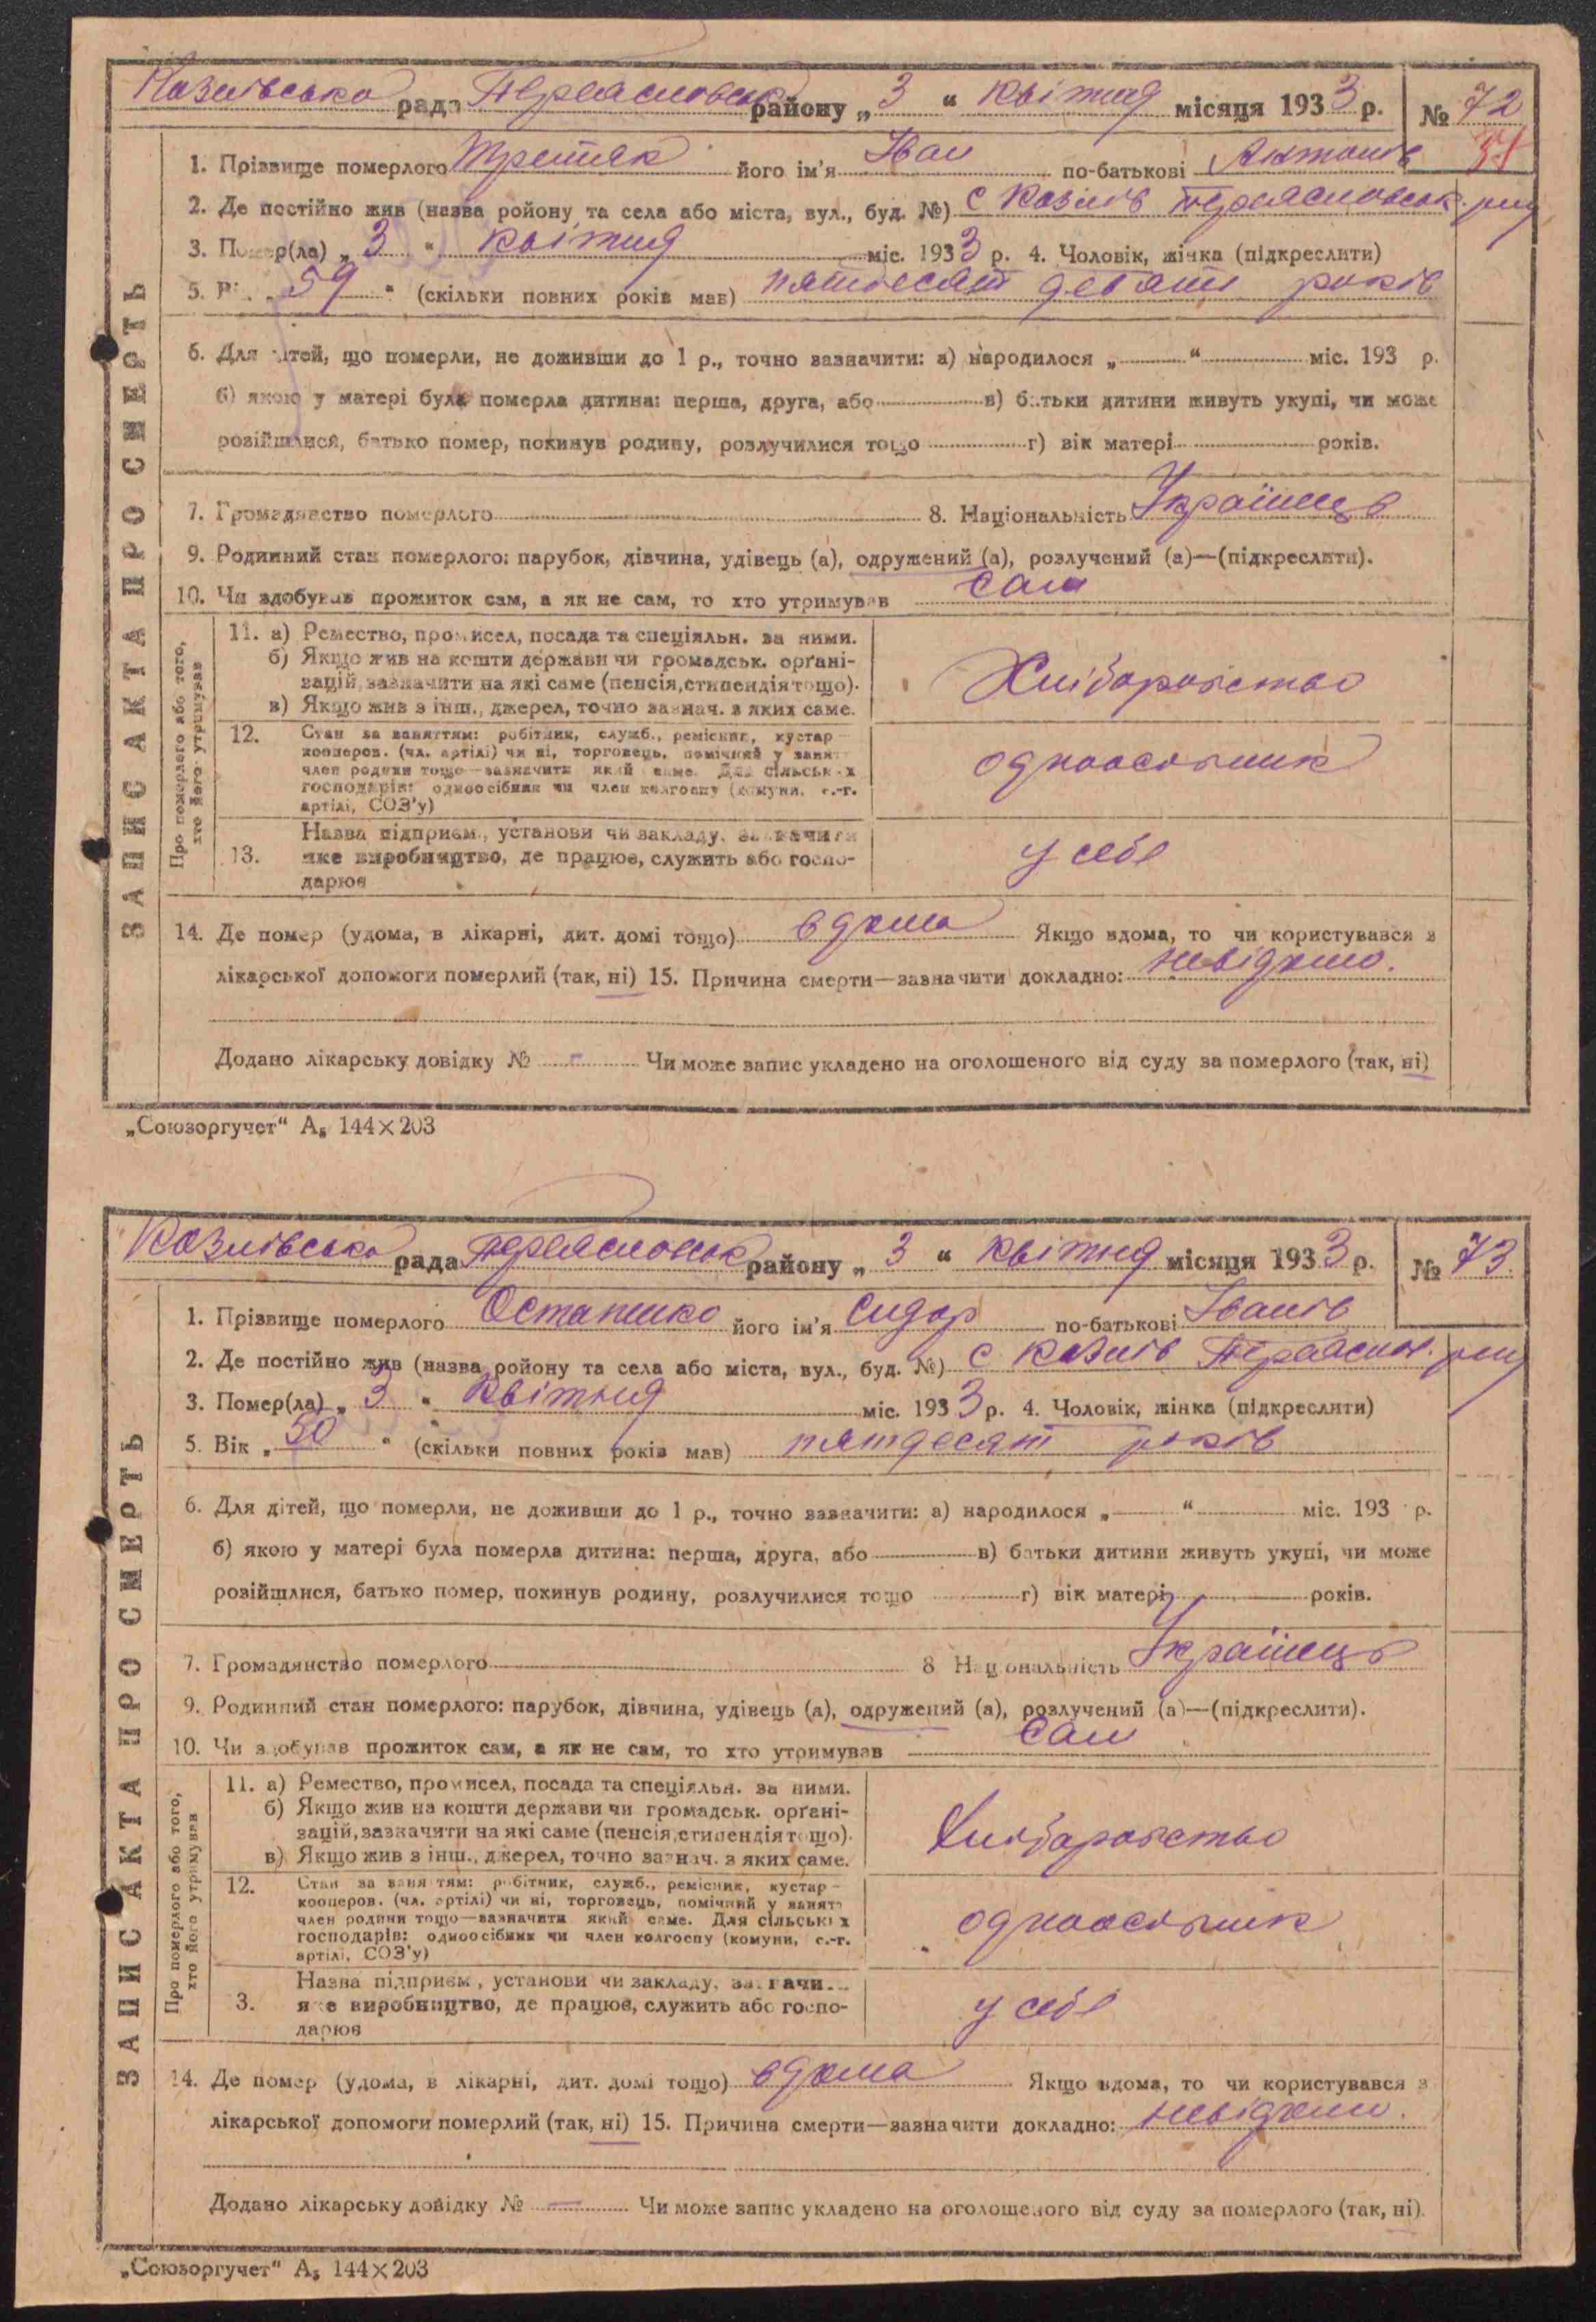 Козлівська рада Переясловськ району „ 3 “ квітня місяця 1933 р. № 72
1. Прізвище померлого Третяк його ім'я Іван по-батькові Антонів 37
2. Де постійно жив (назва ройону та села або міста, вул., буд. №) с Козлів Переясловськ. р-ну
3. Помер(ла) „ 3 “ квітня міс. 1933 р. 4. Чоловік, жінка (підкреслити)
5. Вік „ 59 “ (скільки повних років мав) пятдесят девять років
6. Для дітей, що померли, не доживши до 1 р., точно зазначити: а) народилося „ — “ — міс. 193 р.
б) якою у матері була померла дитина: перша, друга, або — в) батьки дитини живуть укупі, чи може
розійшлися, батько помер, покинув родину, розлучилися тощо — г) вік матері — років.
7. Громадянство померлого — 8. Національність Українець
9. Родинний стан померлого: парубок, дівчина, удівець (а), одружений (а), розлучений (а)—(підкреслити).
10. Чи здобував прожиток сам, а як не сам, то хто утримував сам
Про померлого або того,
хто його утримував
11. а) Ремество, промисел, посада та спеціяльн. за ними.
б) Якщо жив на кошти держави чи громадськ. орґані-
зацій, зазначити на які саме (пенсія, стипендія тощо).
в) Якщо жив з інш., джерел, точно зазнач. з яких саме.
Хліборобство
12. Стан за заняттям: робітник, служб., ремісник, кустар—
кооперов. (чл. артілі) чи ні, торговець, помічний у занят.
член родини тощо—зазначити який саме. Для сільських
господарів: одноосібник чи член колгоспу (комуни, с.-г.
артілі, СОЗ'у)
одноосібник
13. Назва підприєм., установи чи закладу, зазначити
яке виробництво, де працює, служить або госпо-
дарює
у себе
14. Де помер (удома, в лікарні, дит. домі тощо) вдома Якщо вдома, то чи користувався з
лікарської допомоги померлий (так, ні) 15. Причина смерти—зазначити докладно: невідомо.
Додано лікарську довідку № - Чи може запис укладено на оголошеного від суду за померлого (так, ні)
ЗАПИС АКТА ПРО СМЕРТЬ
„Союзоргучет“ А5 144×203
Козлівська рада Переясловськ району „ 3 “ квітня місяця 1933 р. № 73
1. Прізвище померлого Остапенко його ім'я Сидор по-батькові Іванів
2. Де постійно жив (назва ройону та села або міста, вул., буд. №) с Козлів Переяслов. р-ну
3. Помер(ла) „ 3 “ квітня міс. 1933 р. 4. Чоловік, жінка (підкреслити)
5. Вік „ 50 “ (скільки повних років мав) пятдесят років
6. Для дітей, що померли, не доживши до 1 р., точно зазначити: а) народилося „ — “ — міс. 193 р.
б) якою у матері була померла дитина: перша, друга, або — в) батьки дитини живуть укупі, чи може
розійшлися, батько помер, покинув родину, розлучилися тощо — г) вік матері — років.
7. Громадянство померлого — 8 Національність Українець
9. Родинний стан померлого: парубок, дівчина, удівець (а), одружений (а), розлучений (а)—(підкреслити).
10. Чи здобував прожиток сам, а як не сам, то хто утримував сам
Про померлого або того,
хто його утримував
11. а) Ремество, промисел, посада та спеціяльн. за ними.
б) Якщо жив на кошти держави чи громадськ. орґані-
зацій, зазначити на які саме (пенсія, стипендія тощо).
в) Якщо жив з інш., джерел, точно зазнач. з яких саме.
Хліборобство
12. Стан за заняттям: робітник, служб., ремісник, кустар—
кооперов. (чл. артілі) чи ні, торговець, помічний у занят.
член родини тощо—зазначити який саме. Для сільських
господарів: одноосібник чи член колгоспу (комуни, с.-г.
артілі, СОЗ'у)
одноосібник
3. Назва підприєм., установи чи закладу, зазначити
яке виробництво, де працює, служить або госпо-
дарює
у себе
14. Де помер (удома, в лікарні, дит. домі тощо) вдома Якщо вдома, то чи користувався з
лікарської допомоги померлий (так, ні) 15. Причина смерти—зазначити докладно: невідомо.
Додано лікарську довідку № — Чи може запис укладено на оголошеного від суду за померлого (так, ні).
ЗАПИС АКТА ПРО СМЕРТЬ
„Союзоргучет“ А5 144×203